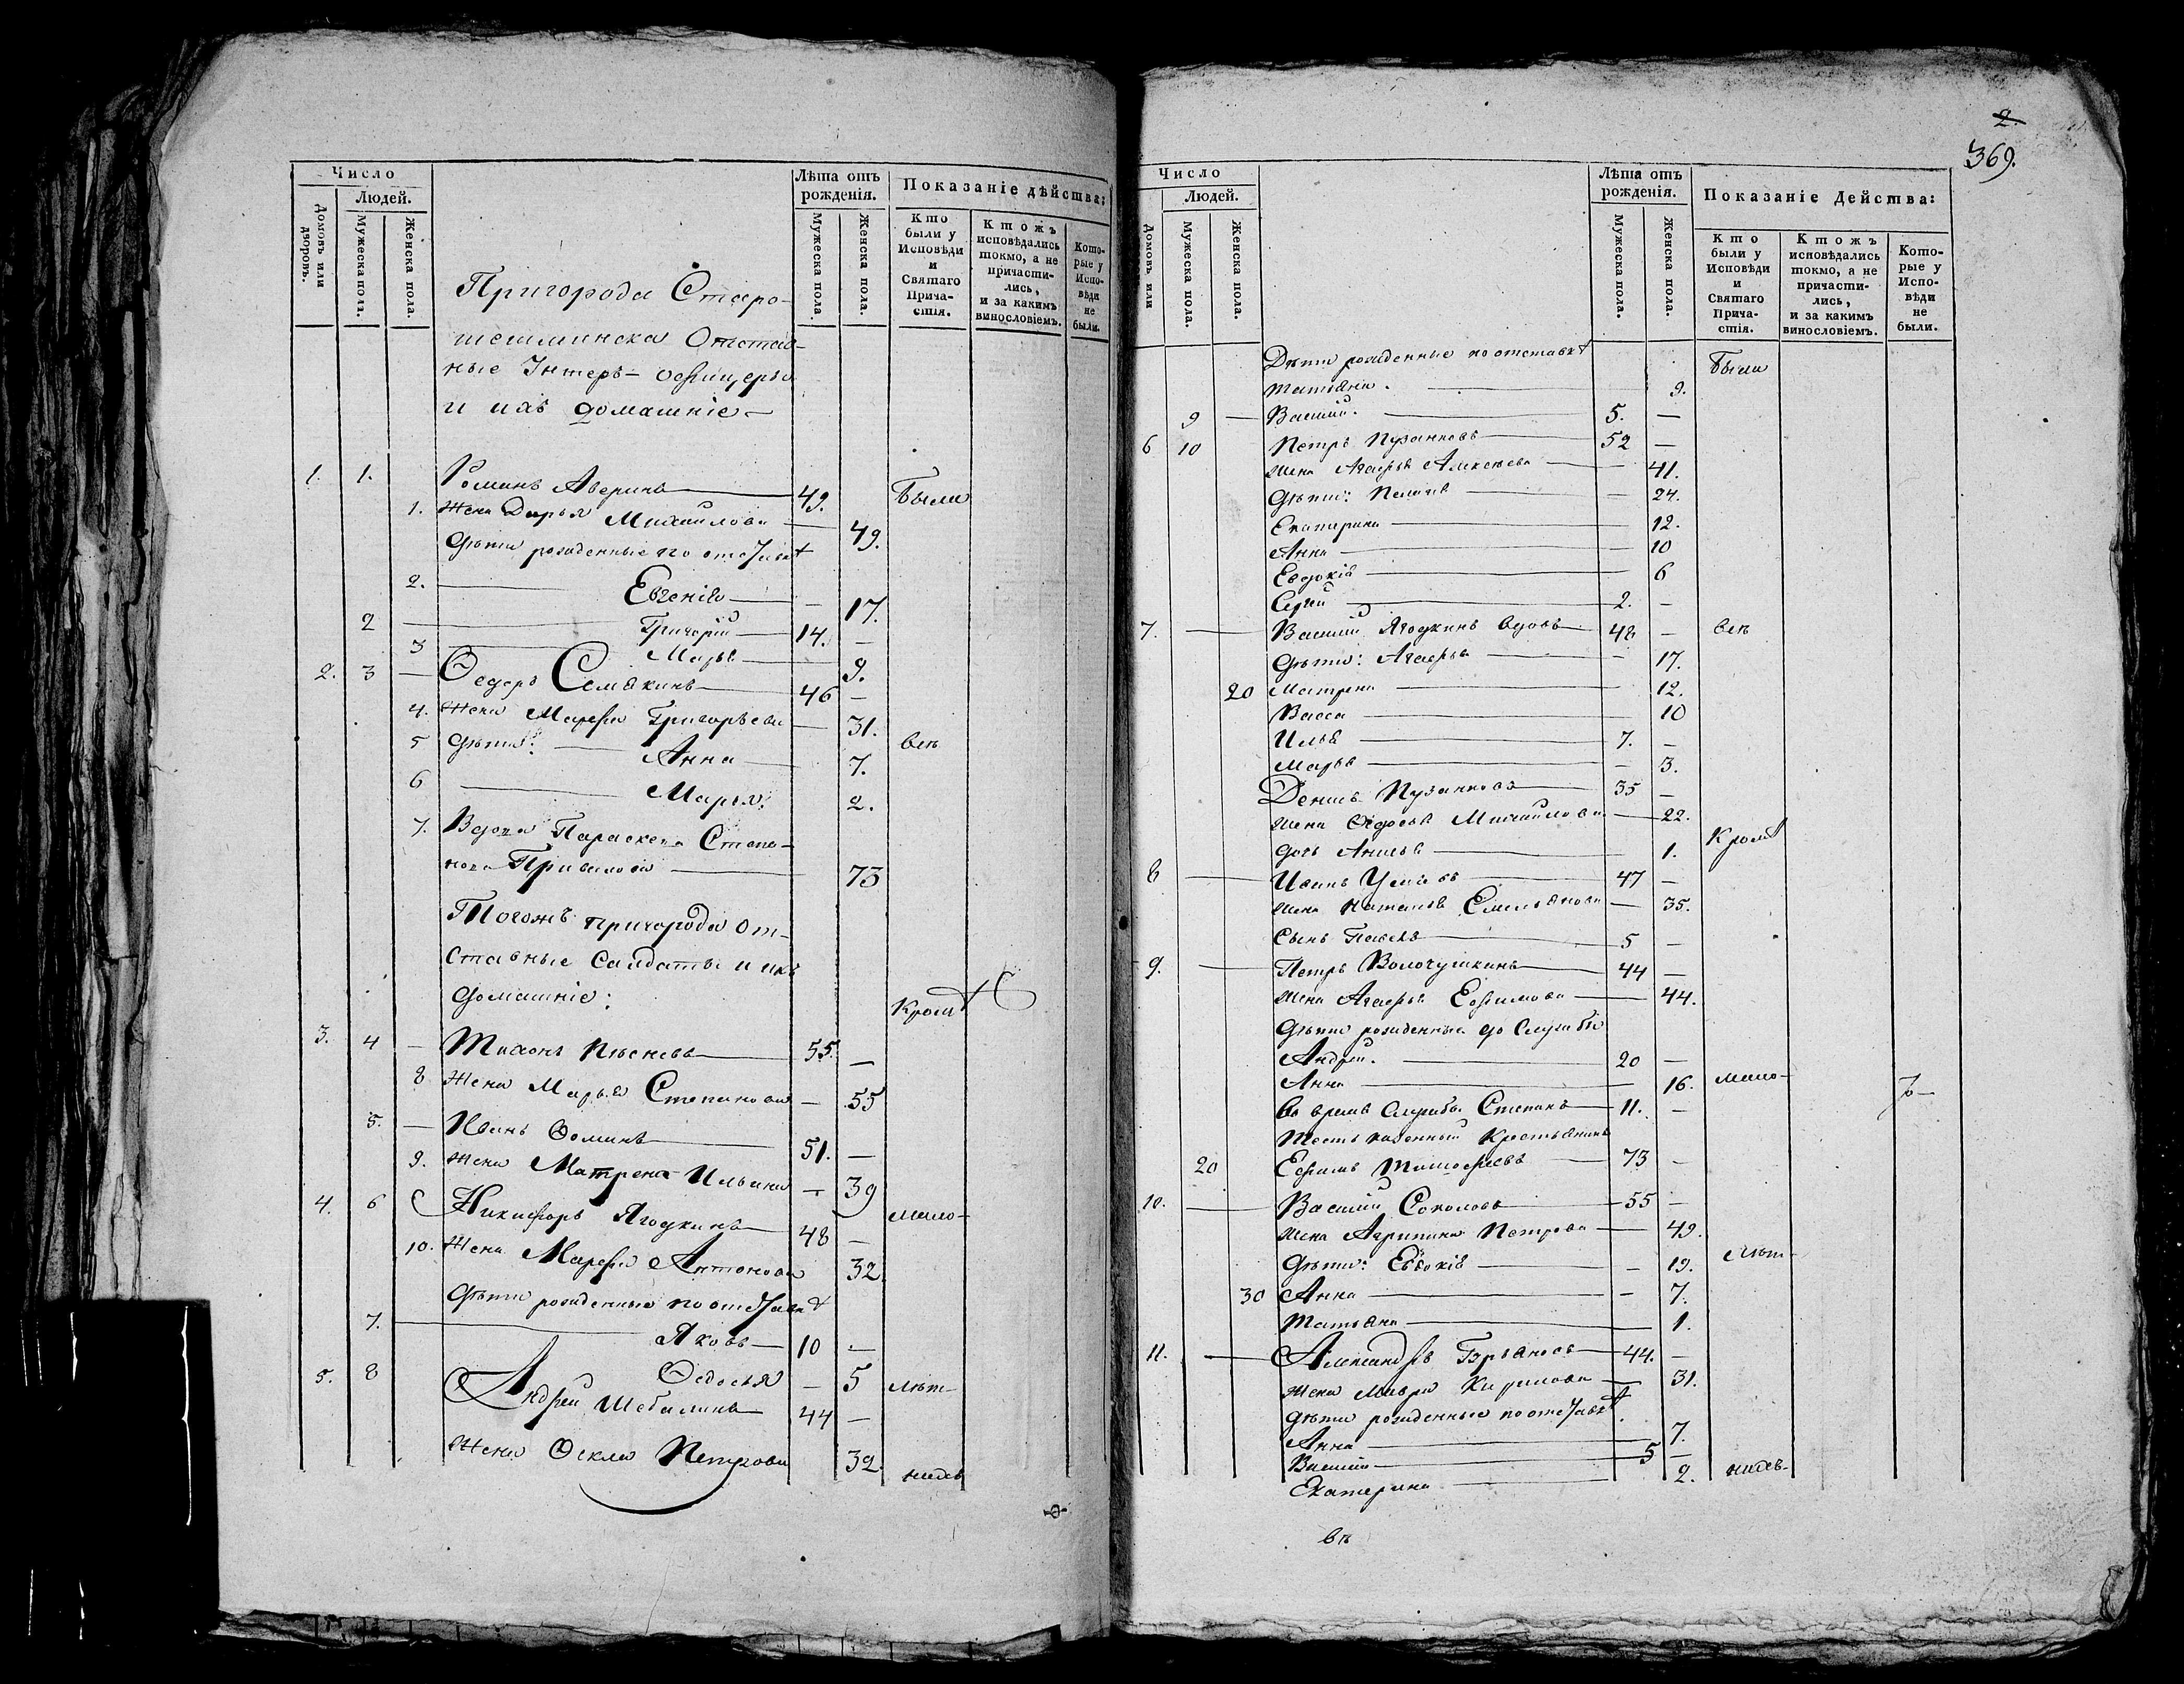 Число
Людей.
Домовъ или дворовъ.
Мужеска пола.
Женска пола.
Лѣта отъ рожденія.
Мужеска пола.
Женска пола.
Показаніе дѣйства:
Кто были у Исповѣди и Святаго Причастія.
Ктожъ исповѣдались токмо, а не причастились, и за какимъ винословіемъ.
Которые у Исповѣди не были.
Пригорода Старо-
шешминска Отстав-
ные Унтеръ-офицеры
и ихъ домашніе
1. 1. Романъ Аверинъ 49. Были
1. Жена Дарья Михайлова 49.
Дѣти рожденные по отставкѣ
2. Евгенія 17.
2 Григорій 14. —
3 Марья 9.
2. 3 — Федоръ Семакинъ 46 —
4. Жена Марфа Григорьева — 31.
5 Дѣти: Анна 7. всѣ
6 Марья 2.
7. Вдова Параскева Степа-
нова 73
Тогожъ пригорода от-
ставные Салдаты и ихъ
домашніе: Кромѣ
3. 4 — Тихонъ 55. —
8 Жена Марья Степанова — 55
5. — Иванъ Фоминъ 51. —
9. Жена Матрена Ильина — 39
4. 6 Никифоръ Ягодкинъ 48 — мало-
10. Жена Марфа Антонова 32.
Дѣти рожденные по отставкѣ
7. Яковъ 10 —
Федосья — 5 лѣт-
5. 8 Андрей Шебалинъ 44 —
Жена Фекла Петрова 32. нихъ
2.
369.
Число
Людей.
Домовъ или
Мужеска пола.
Женска пола.
Лѣта отъ рожденія.
Мужеска пола.
Женска пола.
Показаніе Действа:
Кто были у Исповѣди и Святаго Причастія.
Ктожъ исповѣдались токмо, а не причастились, и за какимъ винословіемъ.
Которые у Исповѣди не были.
Дѣти рожденные по отставкѣ Были
Татьяна. 9.
9 — Василий. 5. —
6 10 Петръ Пузанковъ 52 —
Жена Агафья Алексѣева — 41.
Дѣти: Пелагея — 24.
Екатерина 12.
Анна 10
Евдокія 6
Сергей 2. —
7. — Василий Ягодкинъ вдовъ 48 — всѣ
Дѣти: Агафья — 17.
20 Матрена 12.
Васса 10
Илья 7. —
Марья — 3.
Денисъ Пузанковъ 35 —
Жена Федосья Михайлова — 22.
Дочь Анисья 1. Кромѣ
8 — Иванъ 47 —
Жена Наталья Емельянова — 35.
Сынъ Павелъ 5 —
9. — Петръ Волочушкинъ 44 —
Жена Агафья Ефимова — 44.
Дѣти рожденные до Службы
Андрей. 20 —
Анна 16. мало-
Во время Службы Степанъ 11. —
Тесть казенный Крестьянинъ
20 Ефимъ Тимофеевъ 73 —
10. — Василий Соколовъ 55 —
Жена Агрипина Петрова — 49.
Дѣти: Евдокія — 19. лѣт-
30 Анна — 7.
Татьяна 1.
11. — Александръ 44. —
Жена Мавра Кирилова — 31.
Дѣти рожденные по отставкѣ
Анна 7.
Василий 5 —
Екатерина 2. нихъ
въ